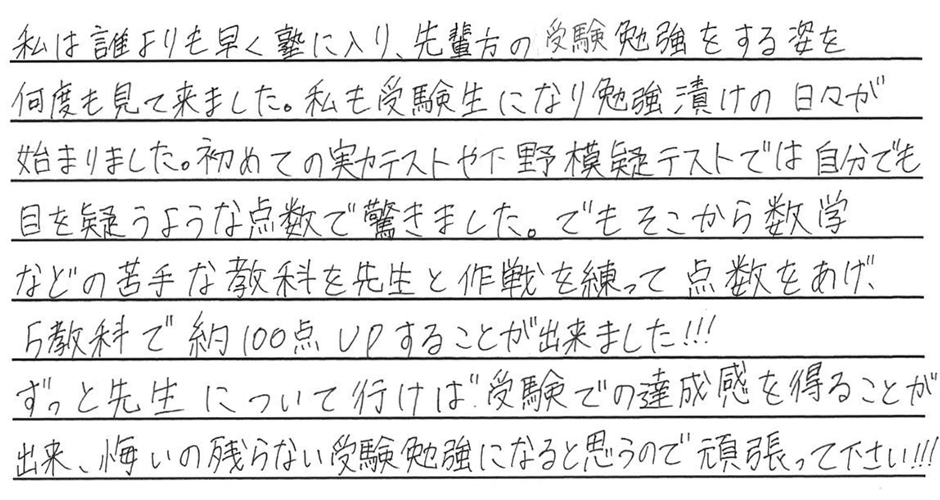 私は誰よりも早く塾に入り、先輩方の受験勉強をする姿を
何度も見て来ました。私も受験生になり勉強漬けの日々が
始まりました。初めての実力テストや下野模疑テストでは自分でも
目を疑うような点数で驚きました。でもそこから数学
などの苦手な教科を先生と作戦を練って点数をあげ、
5教科で約100点UPすることが出来ました!!!
ずっと先生について行けば受験での達成感を得ることが
出来、悔いの残らない受験勉強になると思うので頑張って下さい!!!